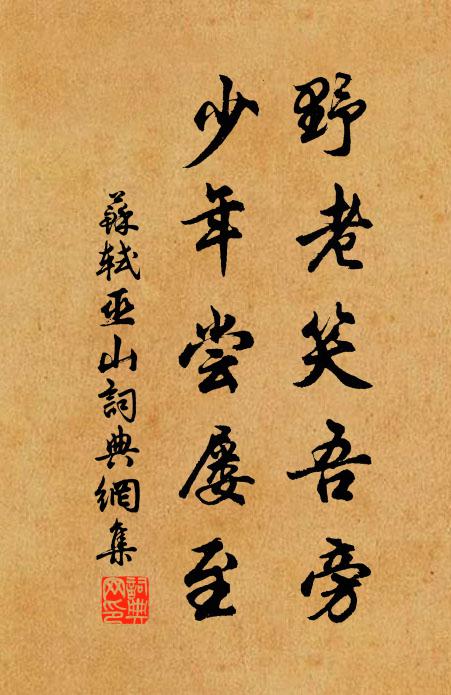 野老笑吾旁
少年尝屡至
蘇軾巫山詞典網集
詞典网印